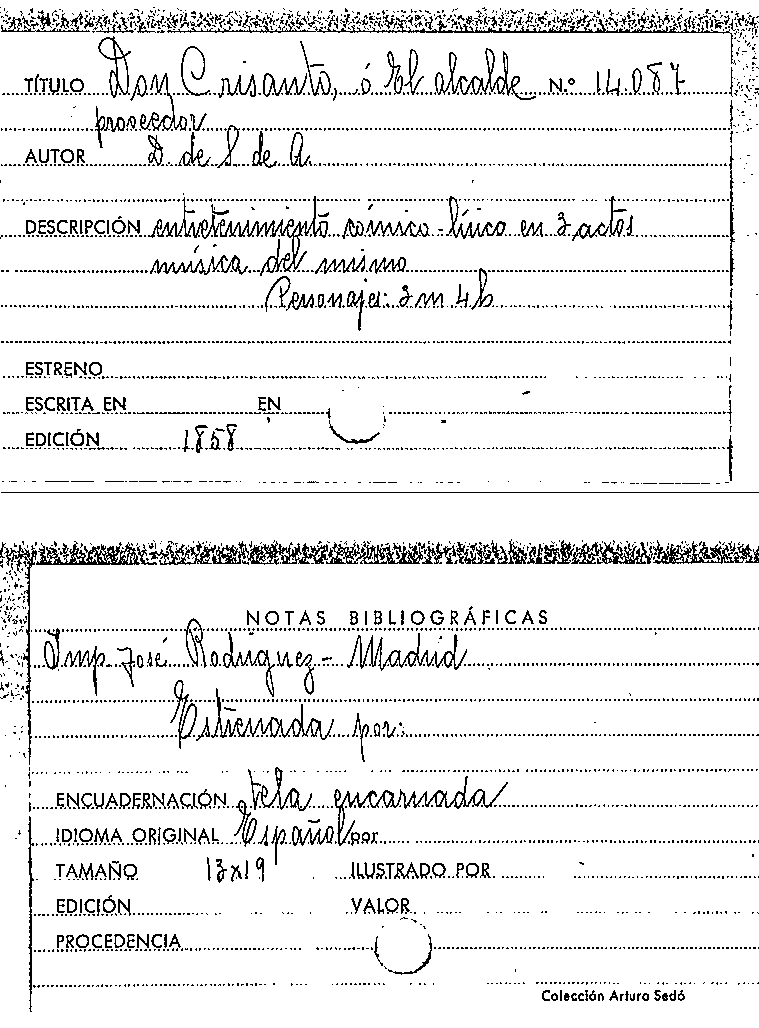 TÍTULO Don Crisanto, ó El alcalde N.º 14.087
proveedor
AUTOR D. de S. de A.
DESCRIPCIÓN entretenimiento cómico-lírico en 3 actos
música del mismo
Personajes: 3 m 4 h
ESTRENO
ESCRITA EN EN
EDICIÓN 1858
NOTAS BIBLIOGRÁFICAS
Imp. José Rodriguez - Madrid
Estrenada por:
ENCUADERNACIÓN tela encarnada
IDIOMA ORIGINAL Español por
TAMAÑO 13x19 ILUSTRADO POR
EDICIÓN VALOR
PROCEDENCIA
Colección Arturo Sedó